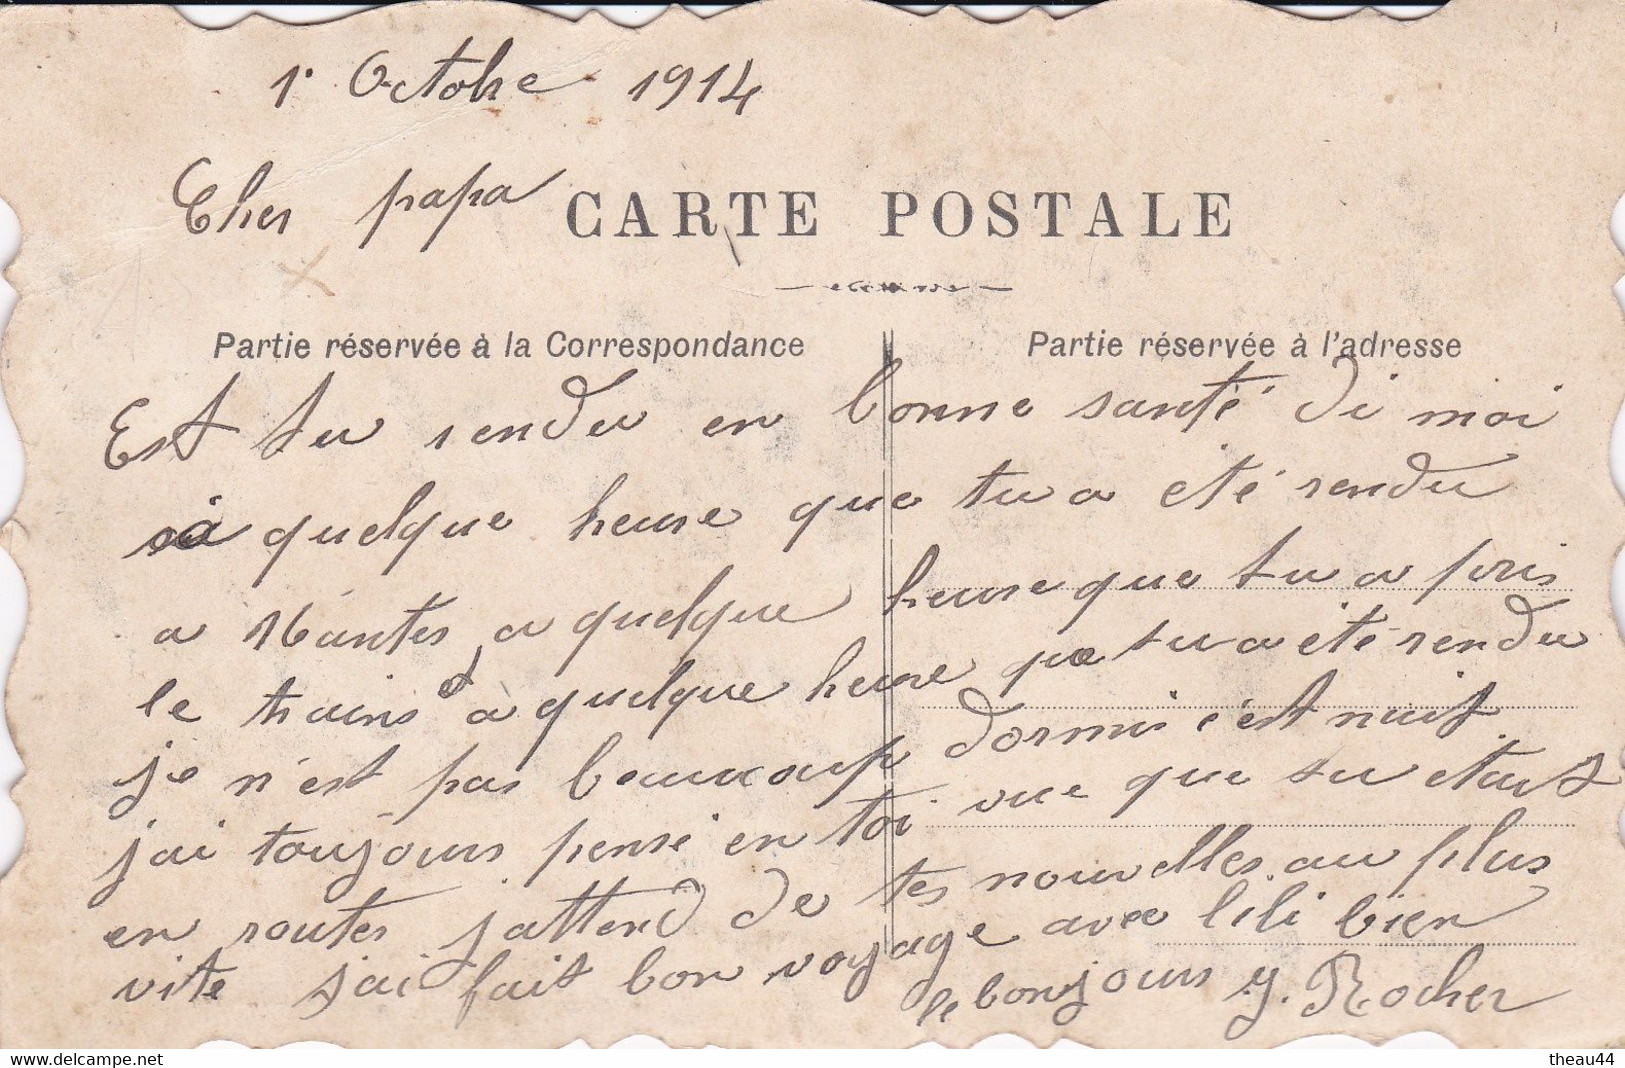 1. Octobre 1914
Cher papa
CARTE POSTALE
Partie réservée à la Correspondance
Partie réservée à l'adresse
Est tu rendu en bonne santé di moi
à quelque heure que tu a été rendu
a Nantes a quelque heure que tu a pris
le trains et à quelque heure que tu a été rendu
je n'est pas beaucoup dormis c'est nuit
j'ai toujours pensé en toi vue que tu etait
en routes j'attend de tes nouvelles au plus
vite j'ai fait bon voyage avec lili bien
le bonjours y. Rocher
theau44